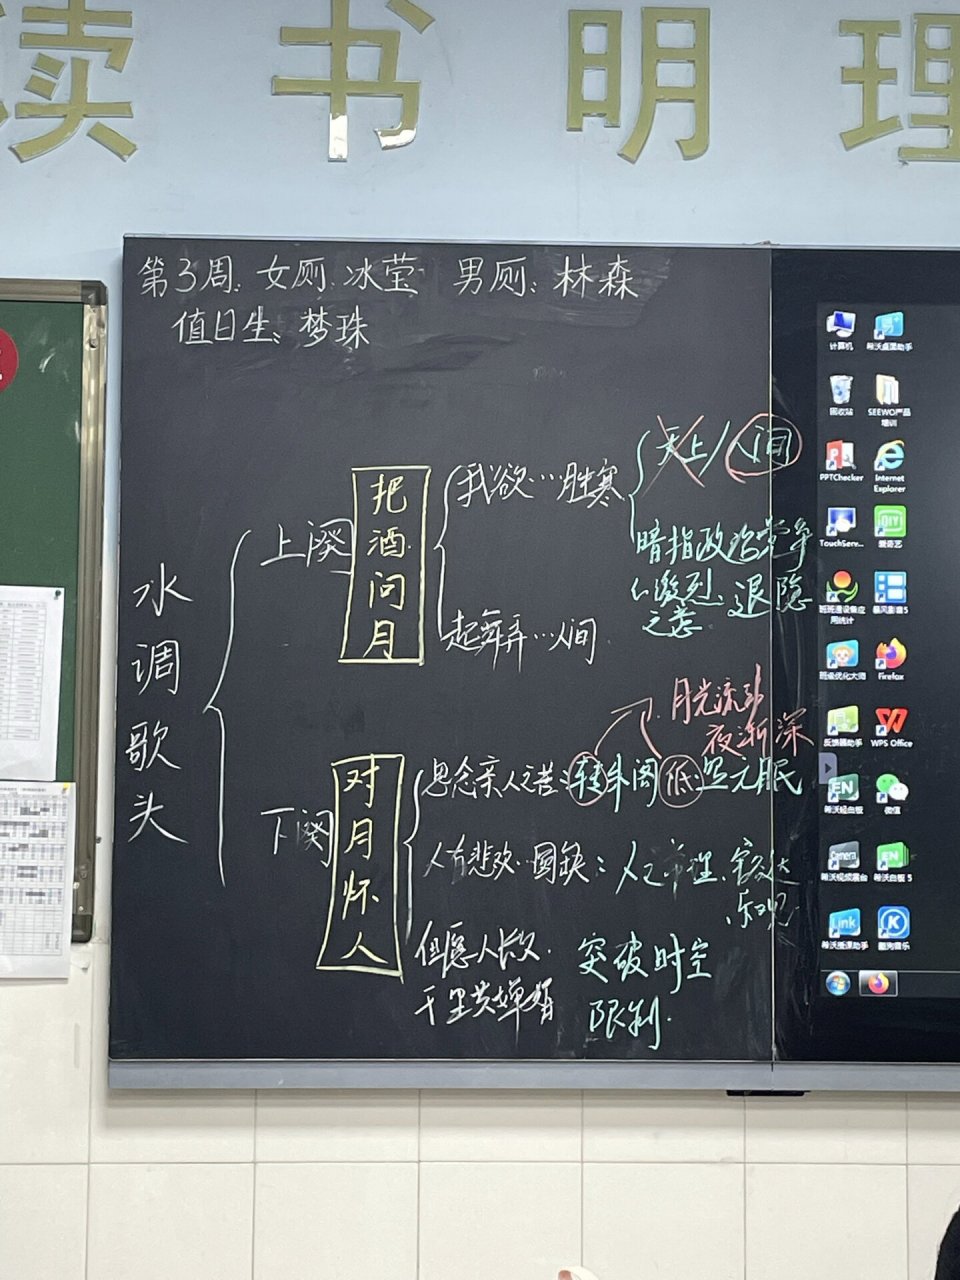 读书明理
第3周. 女厕:冰莹 男厕:林森
值日生:梦珠
水调歌头
上阕
把酒问月
我欲…胜寒
天上/人间
暗指政治党争
之激烈、退隐
之意
起舞弄…人间
下阕
对月怀人
月光流动
夜渐深
思念亲人之苦:转朱阁 低 无眠
人有悲欢…圆缺:人之常理
乐观
但愿人长久.
千里共婵娟
突破时空
限制.
计算机
希沃桌面助手
回收站
SEEWO产品培训
PPTChecker
Internet Explorer
TouchServ...
爱奇艺
班班通设备应用统计
暴风影音5
班级优化大师
Firefox
反馈器助手
WPS Office
EN
希沃轻白板
微信
Camera
希沃视频展台
EN
希沃白板 5
Link
希沃授课助手
K
酷狗音乐